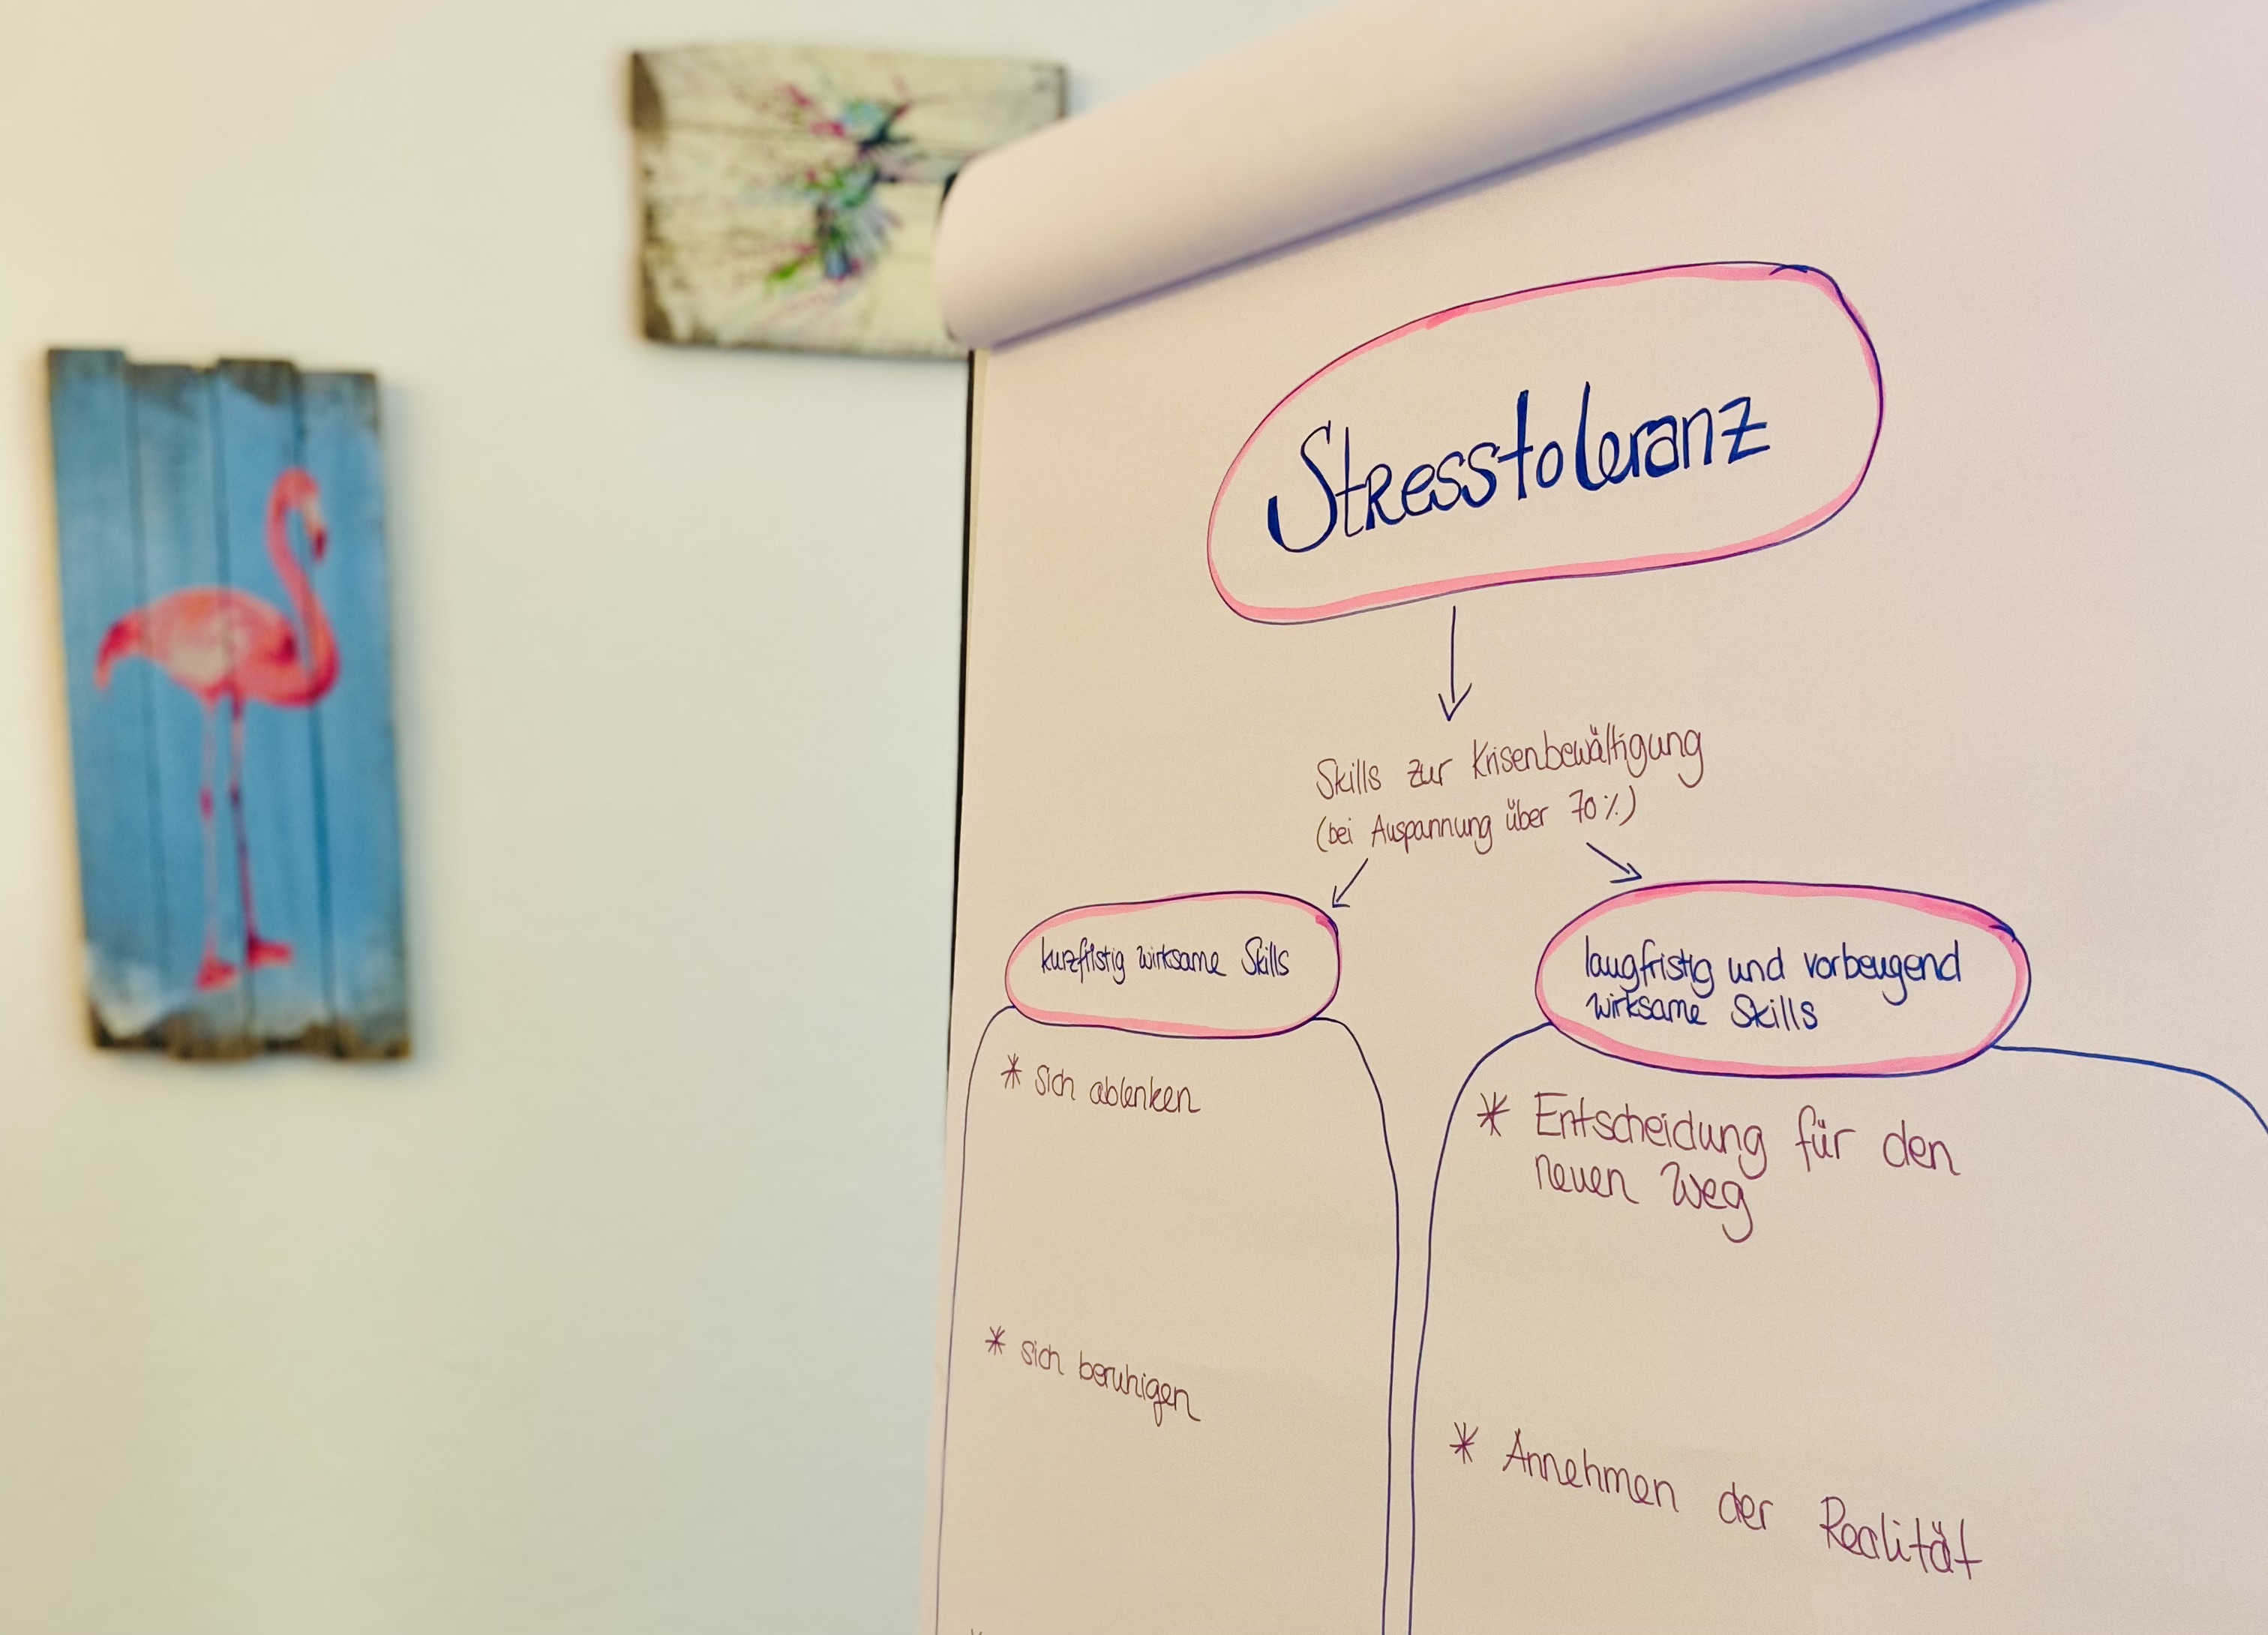 Stresstoleranz
Skills zur Krisenbewältigung
(bei Anspannung über 70%)
kurzfristig wirksame Skills
* sich ablenken
* sich beruhigen
langfristig und vorbeugend
wirksame Skills
* Entscheidung für den
neuen Weg
* Annehmen der Realität